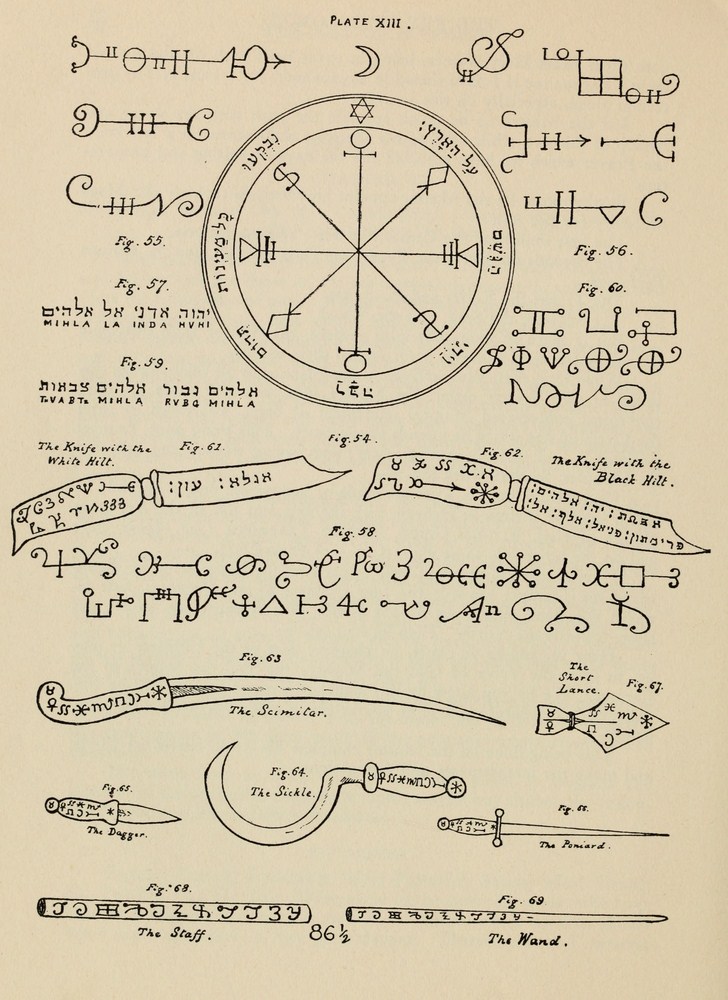 PLATE XIII.
על־הארץ:
הגשם
ויהי
נבקעו
כל־מעינות
תהום
Fig. 55.
Fig. 56.
Fig. 57.
יהוה אדני אל אלהים
MIHLA LA INDA HVHI
Fig. 60.
Fig. 59.
אלהים גבור אלהים צבאות
TzVABTz MIHLA RVBG MIHLA
Fig. 54.
The Knife with the
White Hilt.
Fig. 61.
אגלא: עון:
Fig. 62.
The Knife with the
Black Hilt.
Fig. 58.
Fig. 63
The Scimitar.
The
Short
Lance.
Fig. 67.
Fig. 64.
The Sickle.
Fig. 65.
The Dagger.
Fig. 66.
The Poniard.
Fig. 68.
The Staff.
Fig. 69
The Wand.
86½